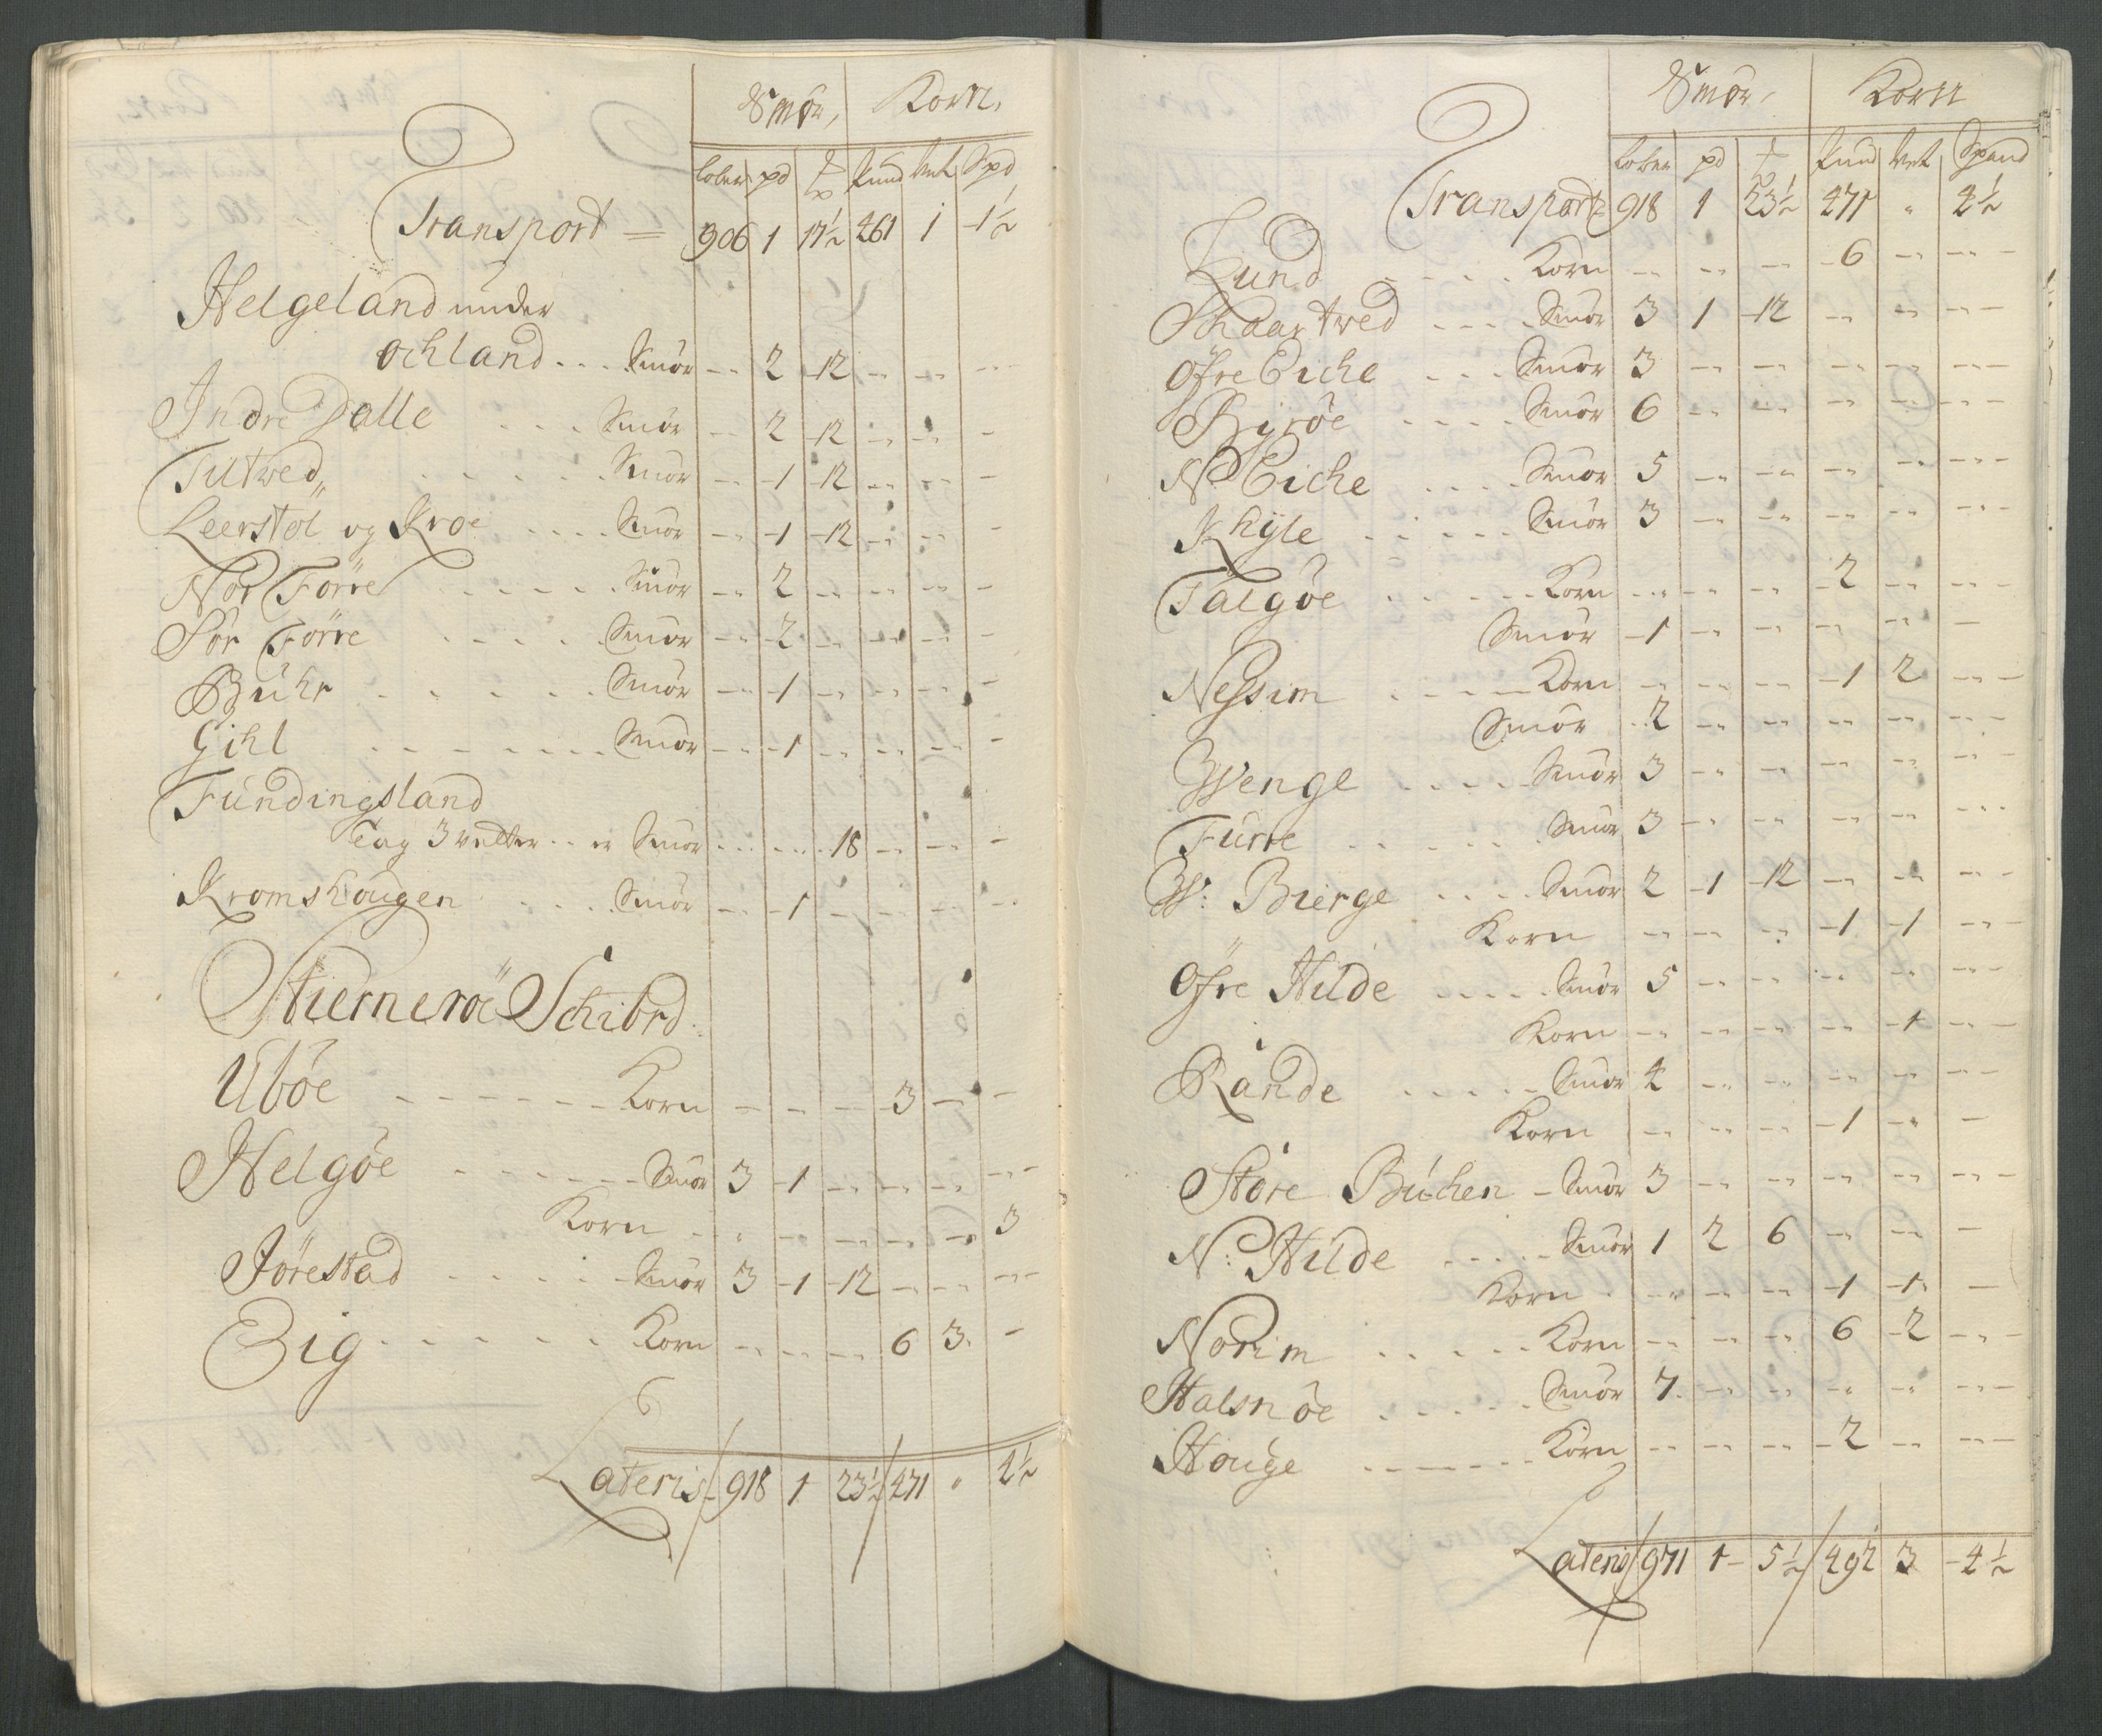 Smör, Korn,
lober pd ℔ Pund Vet Spd
Transport 906 1 17½ 461 1 -1½
Helgeland under
ochland . . . Smör -- 2 -12 -- -- --
Indre Dalle . . . Smör -- 2 -12 -- -- -
Tutved, . . . . . Smör -- -1 -12 -- -- -
Leerstöl og Kroe . . . . Smör -- -1 -12 -- -- -
Nor Förre . . . . . Smör -- 2 -- -- -- -
Sör Förre . . . . Smör -- -2 -- -- -- -
Buhr . . . . . Smör -- -1 -- -- -- -
Gihl . . . . . . Smör -- -1 -- -- -- -
Fundingsland
Tag 3 vetter . . er Smör . . . . . . 18 -- -- -
Kromshougen . . . . Smör -- -1 -- -- -- --
Stierneröe Schibrd:
Uböe - - - - - - Korn - - - 3 - -
Helgöe - - - - - Smör 3 -1 -- -- -- --
Korn - - -- -- -- -- 3
Jörestad . . . . . Smör 3 -1 -12 -- -- --
Eig . . . . . . Korn -- -- -- 6 3. -
Lateris 918 1 23½ 471 " 4½
Smör, Korn
lober pd ℔ Pund Vet Spand
Transport 918 1 23½ 471 " 4½
Lund . . . . Korn -- -- -- -6 -- --
Skaartved . . . . Smör 3 1 -12 -- -- --
Öfre Eiche . . . Smör 3 -- -- -- -- --
Byröe . . . . Smör 6 -- -- -- -- --
N: Eiche . . . . Smör 5 -- -- -- -- --
Khÿle . . . . . Smör 3 -- -- -- -- --
Talgöe . . . . . Korn -- -- -- -2 -- --
Smör -1 -- -- -- -- -
Nessim . . . . . Korn -- -- -- -1 2 --
Smör . 2 -- -- -- -- --
Wenge . . . . Smör 3 -- -- -- -- --
Furre . . . . . . Smör 3 -- -- -- -- --
W: Bierge . . . . Smör 2 -1 -12 -- -- --
Korn -- -- -- -1 -1 --
Öfre Hilde . . . . Smör 5 -- -- -- -- --
Korn -- -- -- -- -1 --
Rande . . . . . Smör 4 -- -- -- -- --
Korn -- -- -- -1 -- -
Store Buchen - Smör 3 -- -- -- -- --
N: Hilde . . . . . Smör 1 2 6 -- -- -
Korn . -- -- -- -1 -1 -
Norim . . . . . Korn -- -- -- 6 -2 --
Halsnöe . . . . . Smör 7. -- -- -- -- --
Houge - - - - - Korn -- -- -- -2 -- --
Lateris 971 1 - 5½ 492 3 -4½